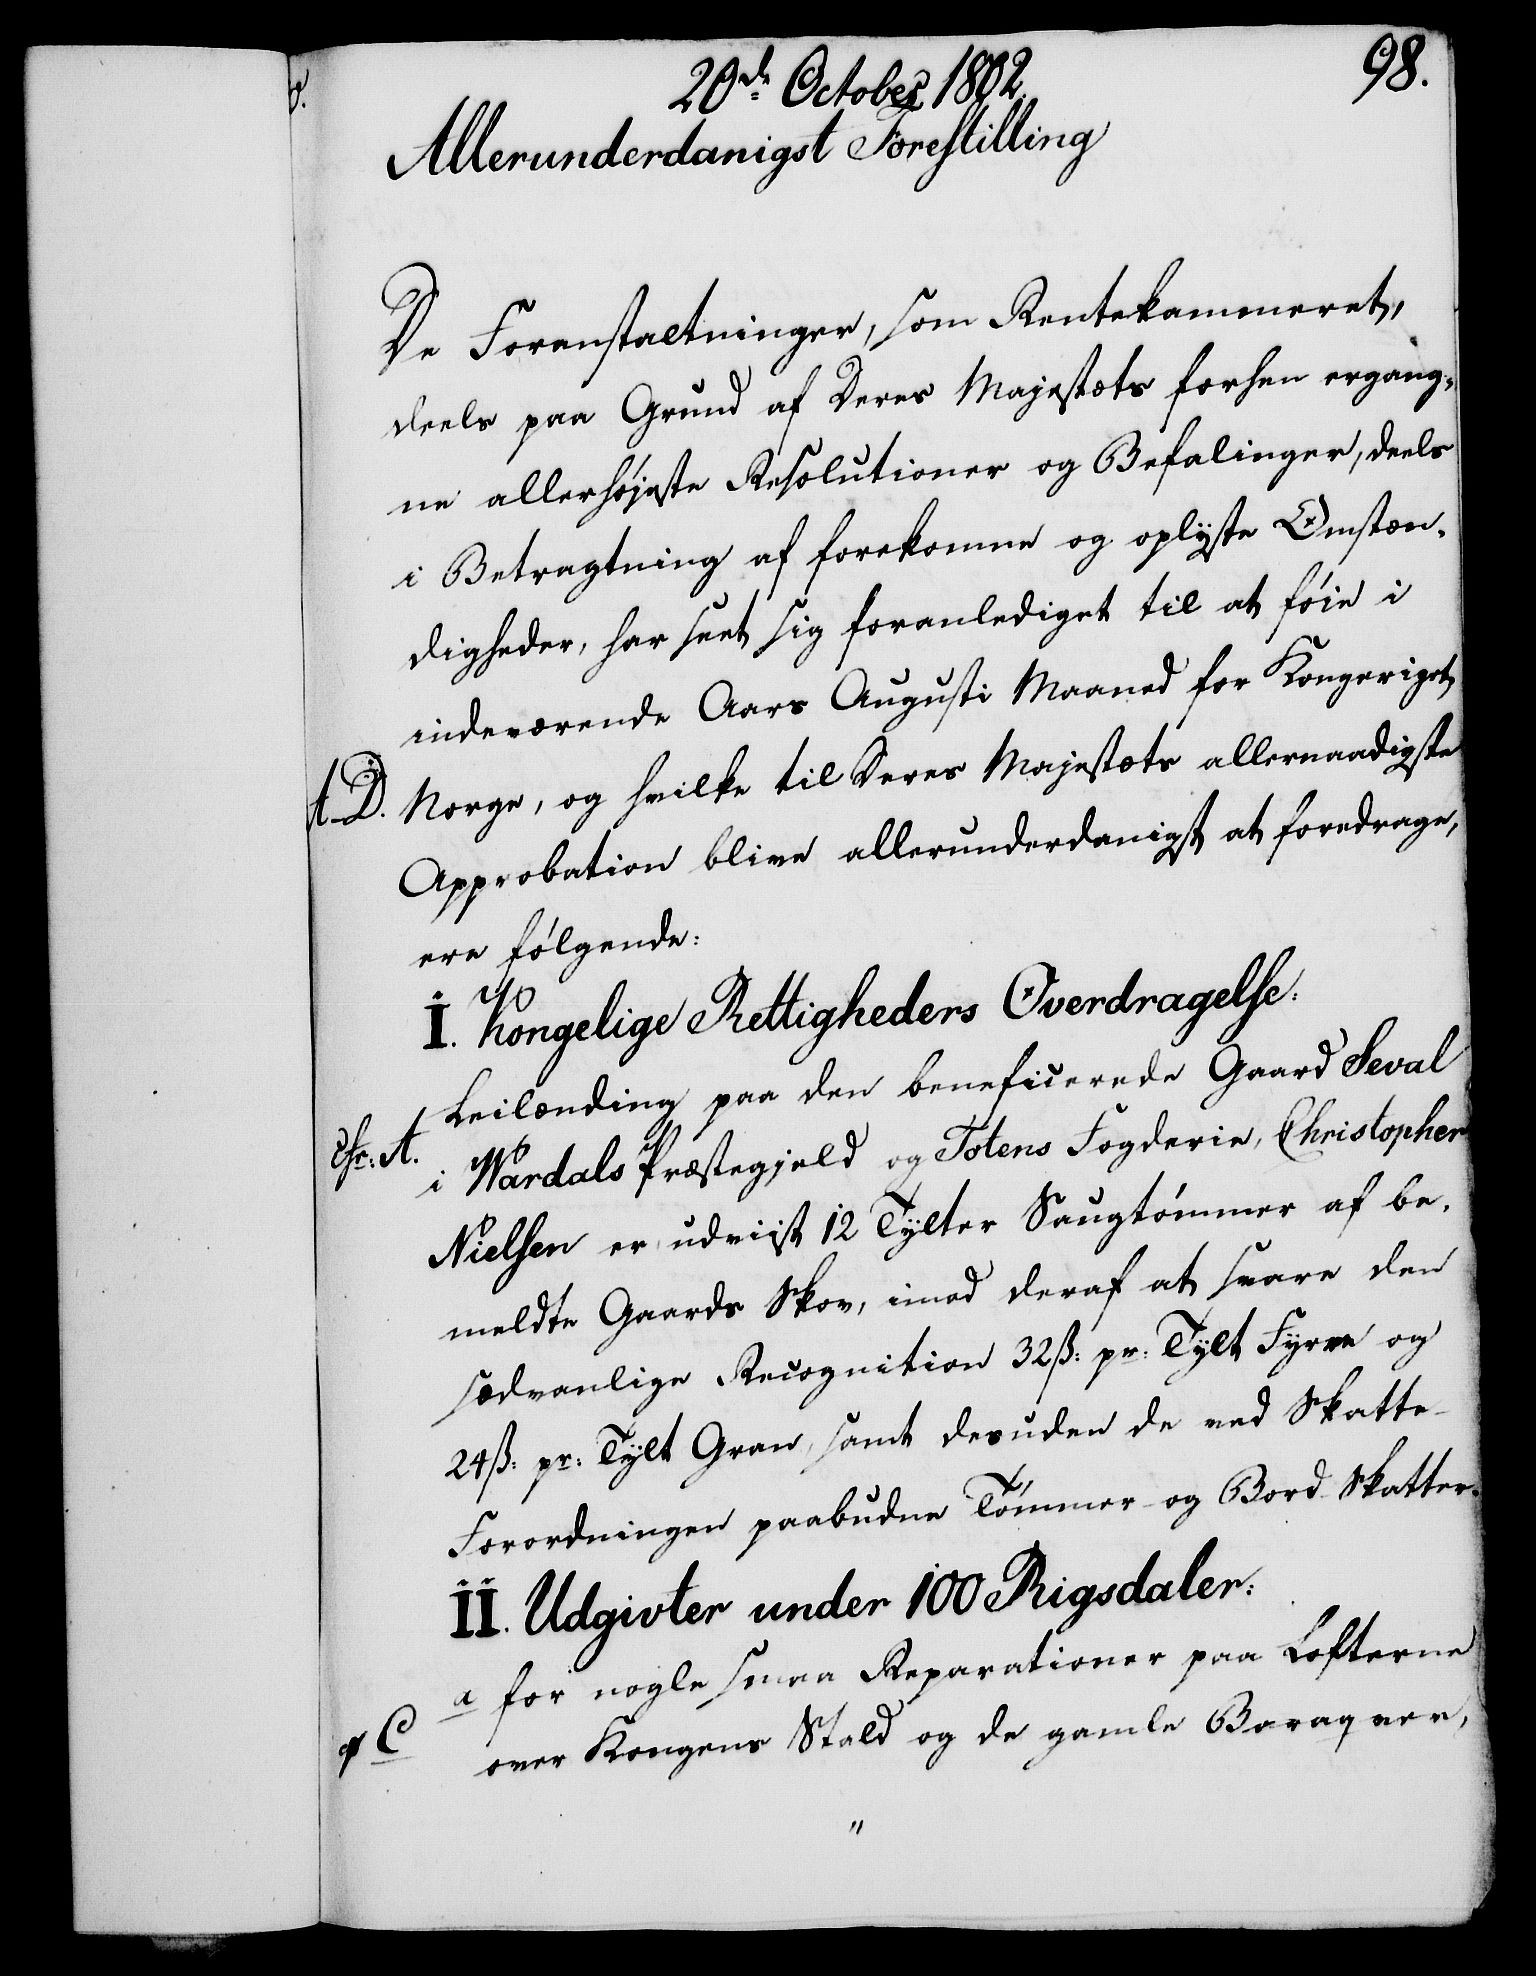 98.
20de October 1802.
Allerunderdanigst Forestilling
De Foranstaltninger, som Rentekammeret,
deels paa Grund af Deres Majestæts forhen ergang-
ne allerhøjeste Resolutioner og Befalinger, deels
i Betragtning af forekomne og oplyste Omstæn-
digheder, har seet sig foranlediget til at føie i
indeværende Aars Augusti Maaned for Kongeriget
A-D. Norge, og hvilke til Deres Majestæts allernaadigste
Approbation blive allerunderdanigst at foredrage,
ere følgende:
I. Kongelige Rettigheders Overdragelse:
Leilænding paa den beneficerede Gaard Seval
cfr: A. i Wardals Præstegjeld og Totens Fogderie, Christopher
Nielsen er udviist 12 Tylter Saugtømmer af be-
meldte Gaards Skov, imod deraf at svare den
sædvanlige Recognition 32ß: pr: Tylt Fyrre og
24ß: pr: Tylt Gran, samt desuden de ved Skatte-
Forordningen paabudne Tømmer- og Bord-Skatter.
II. Udgivter under 100 Rigsdaler:
a for nogle smaa Reparationer paa Lofterne
C over Kongens Stald og de gamle Baraqver,
"